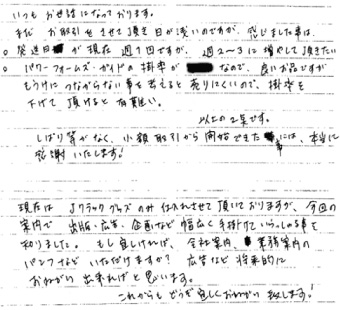 いつも お世話になっております。
まだ お取引を させて頂き 日が浅いのですが、感じました事は、
○ 発送日が 現在 週1回ですが、週2～3に 増やして頂きたい
○ パワーフォームズ・ガイドの 掛率が なので、良いお品ですが
もうけにつながらない事を考えると 売りにくいので、掛率を
下げて 頂けると 有難い。
以上の2点です。
しばり等がなく、小額取引から 開始できた事には、本当に
感謝いたします!
現在は Jクラックグッズのみ 仕入れさせて 頂いておりますが、今回の
案内で 出版・広告、企画など 幅広く 手掛けていらっしゃる事を
知りました。もし 宜しければ、会社案内、業務案内の
パンフなど いただけますか? 広告など 将来的に
おねがい 出来ればと 思います。
これからも どうぞ 宜しく おねがい 致します!